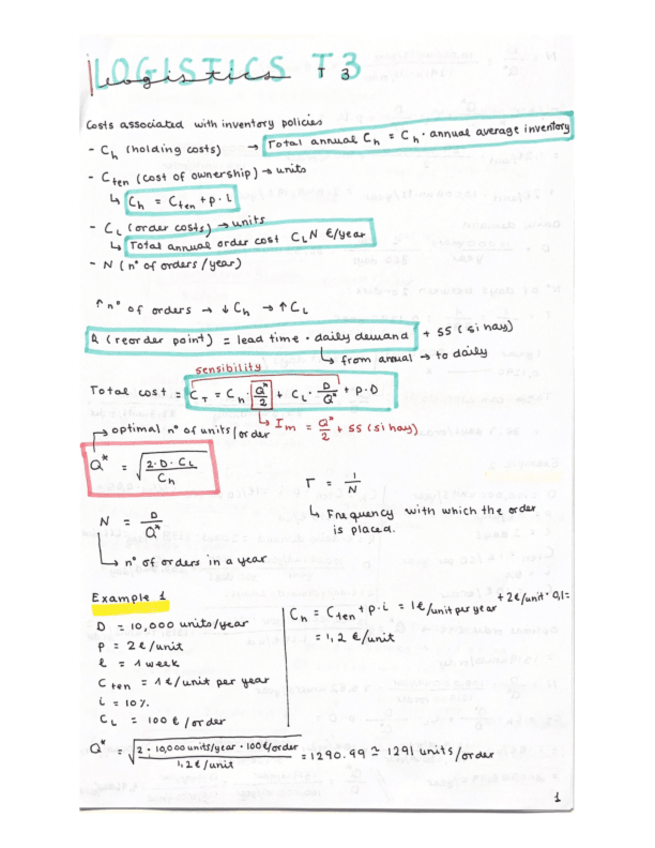 LOGISTICS T3
logistics T 3
Costs associated with inventory policies
- Ch (holding costs) → Total annual Ch = Ch · annual average inventory
- Cten (cost of ownership) → units
↳ Ch = Cten + p · i
- CL (order costs) → units
↳ Total annual order cost CLN €/year
- N (nº of orders/year)
↑ nº of orders → ↓ Ch → ↑ CL
R (reorder point) = lead time · daily demand + SS (si hay)
↳ from annual → to daily
sensibility
Total cost = CT = Ch · Q*/2 + CL · D/Q* + p · D
↳ Im = Q*/2 + SS (si hay)
→ optimal nº of units/order
Q* = √(2·D·CL / Ch)
T = 1/N
↳ Frequency with which the order
is placed.
N = D/Q*
↳ nº of orders in a year
Example 1
D = 10,000 units/year
P = 2€/unit
l = 1 week
Cten = 1€/unit per year
i = 10%
CL = 100 €/order
Ch = Cten + p·i = 1€/unit per year + 2€/unit · 0,1=
= 1,2 €/unit
Q* = √(2 · 10,000 units/year · 100€/order / 1,2€/unit) = 1290.99 ≃ 1291 units/order
1